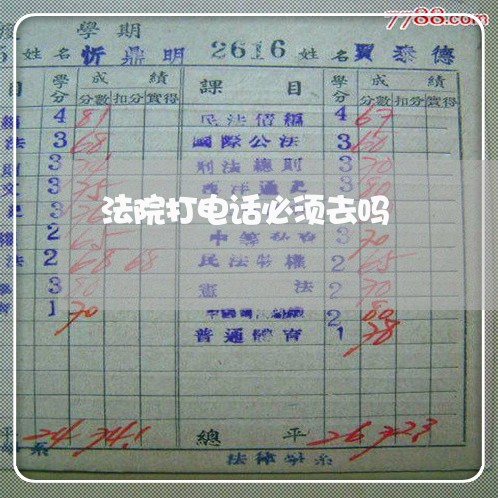 7788.com
學期
姓名 忻鼎明 2616 姓名 賈泰德
目 學分 成績 分數 扣分 實得 課目 學分 成績 分數 扣分 實得
4 81 民法債編 4 67
法 3 68 國際公法 3 60
3 刑法總則 3 70
文 3 75 西洋通史 3 80
法院打电话必须去吗
2 65 3 70
法 2 68 68 民法物權 2 65
3 80 憲法 2 70
1 70 2 80
普通體育 1 78
平 24 74.1 總平 26 72.3
系 法律學系